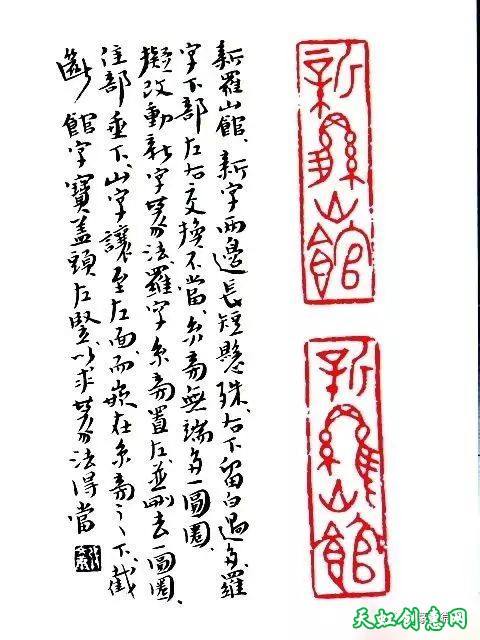 新羅山館、新字兩邊長短懸殊、右下留白過多、羅
字下部左右交換不當、糸旁無端多一圓圈、
擬改動新字篆法、羅字糸旁置左並刪去一圓圈、
隹部垂下、山字讓至左面、而嵌在糸旁之下、截
斷館字寶蓋頭左竪、以求篆法得當
新羅山館
新羅山館
天虹创意网